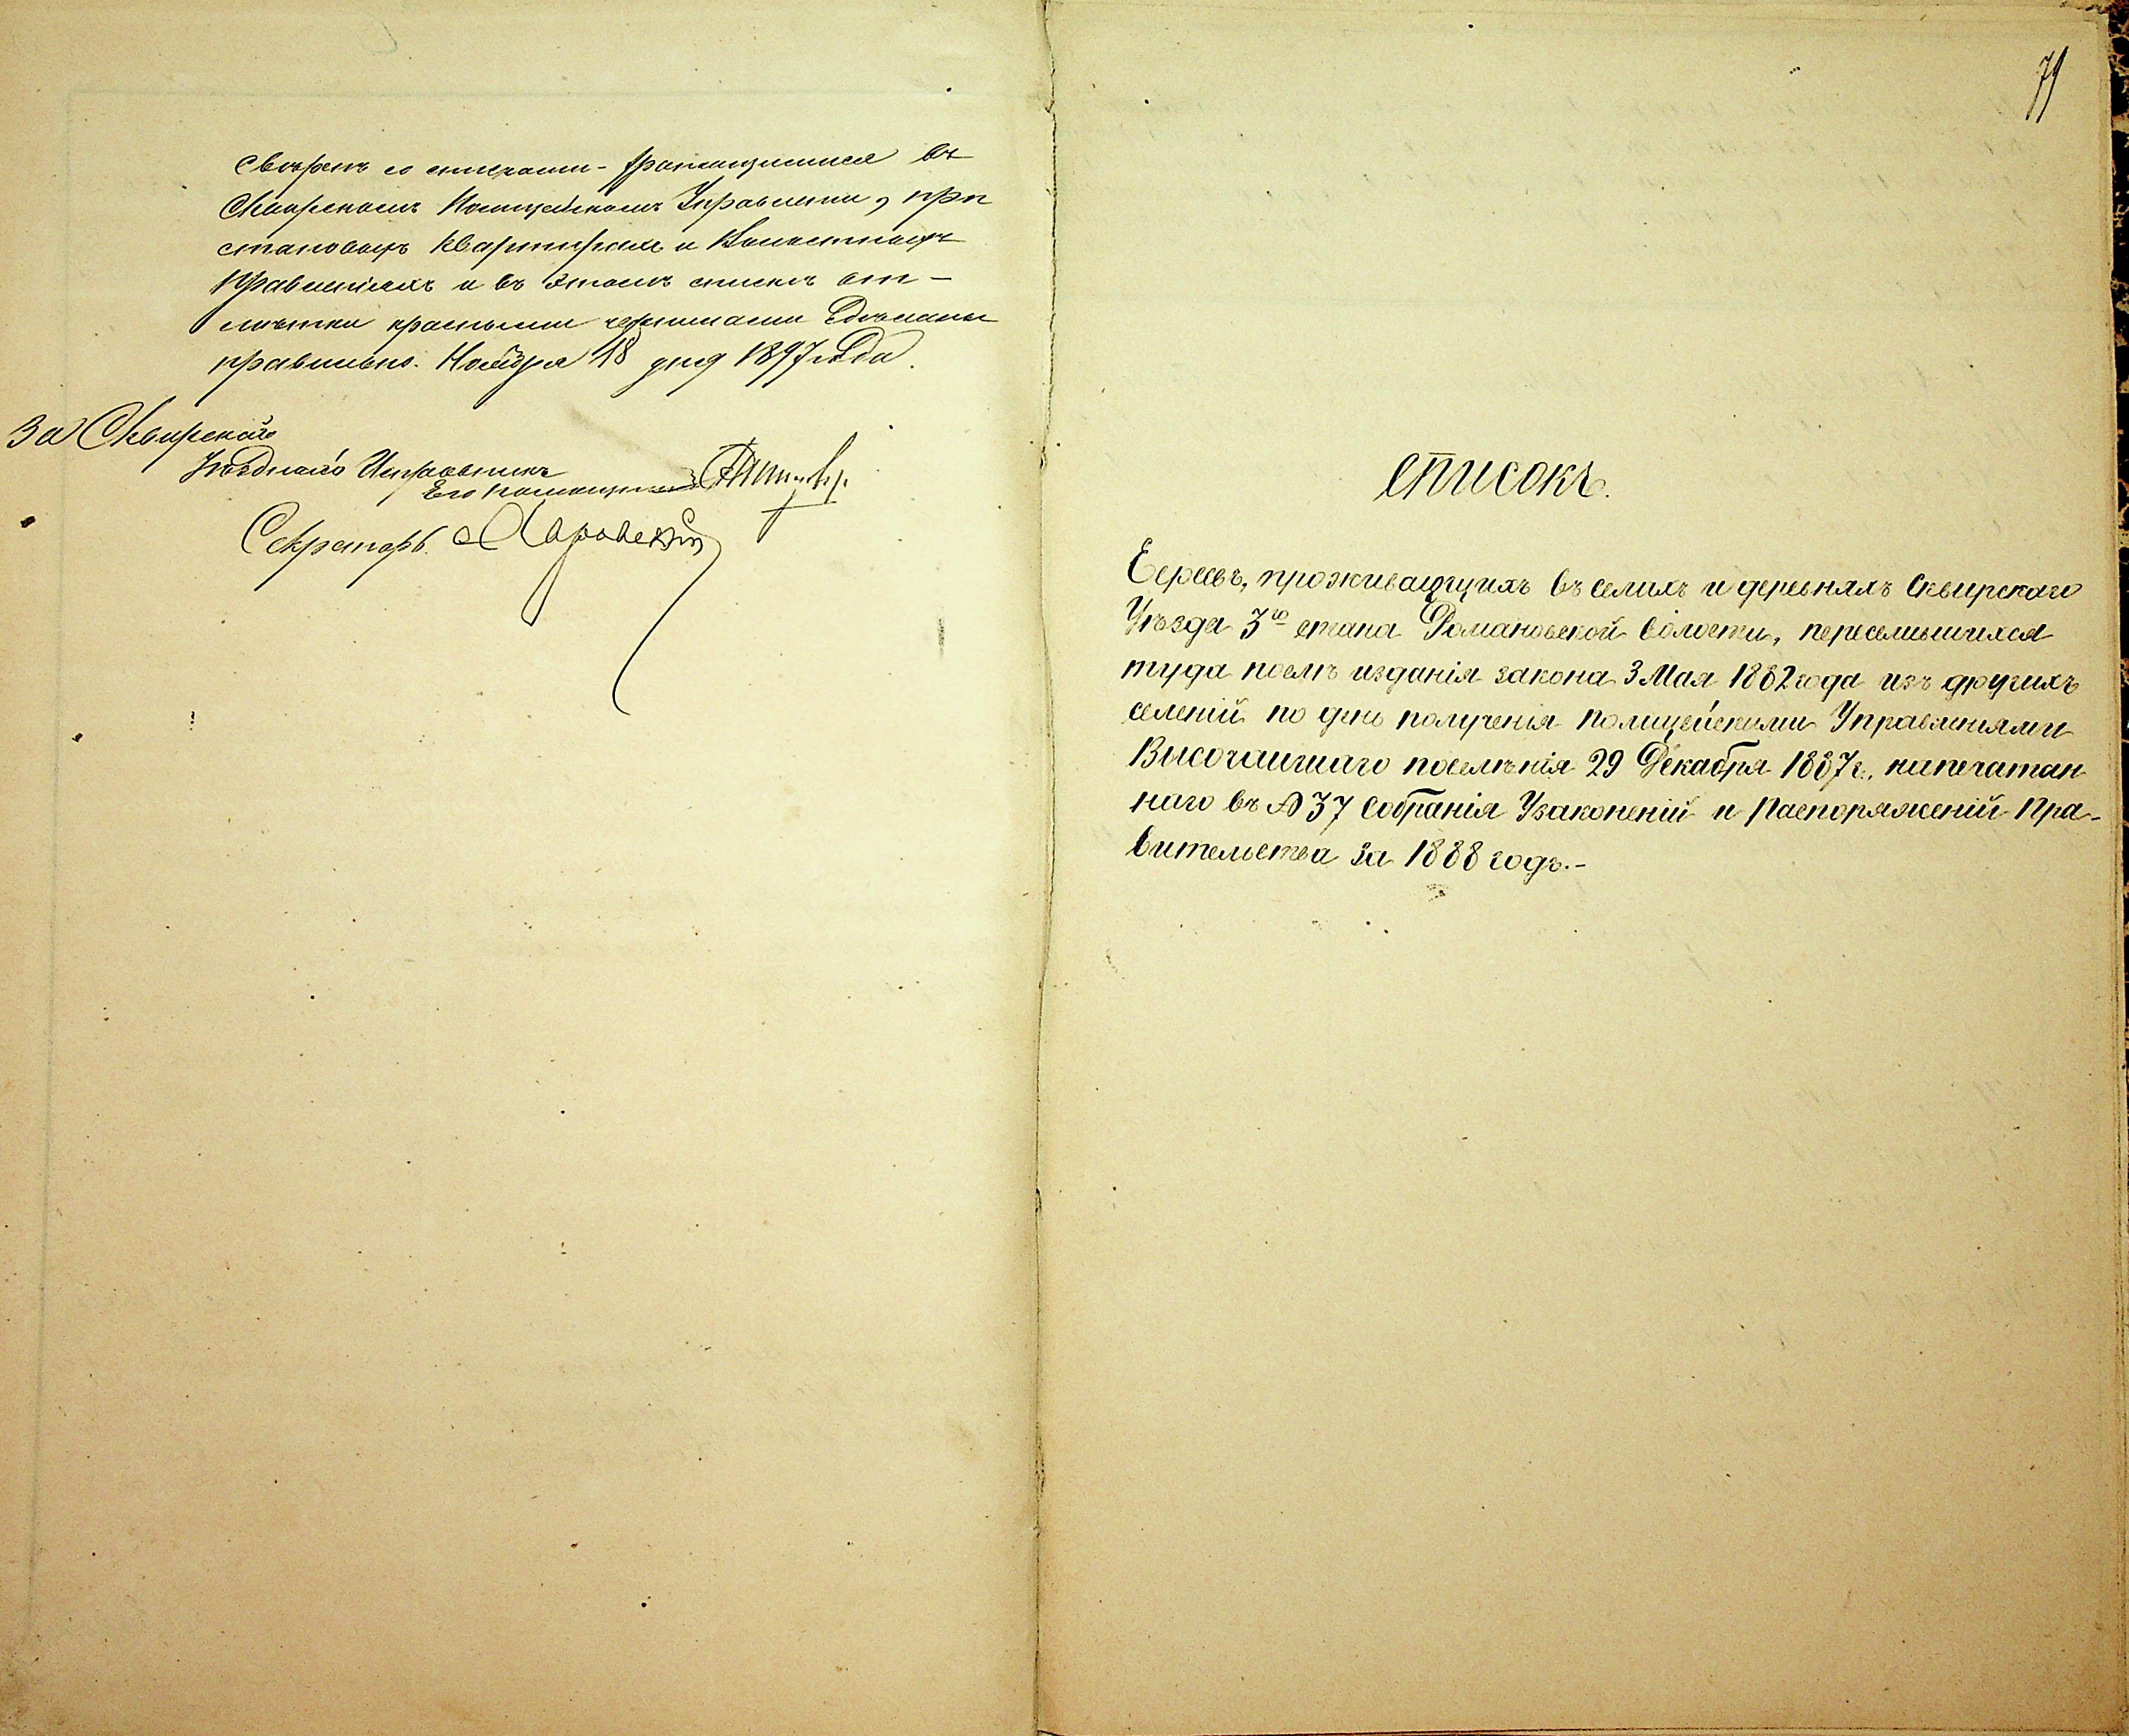 Свѣренъ со списками хранящимися въ
Сквирскомъ Полицейскомъ Управленіи, при
становыхъ квартирахъ и Волостныхъ
Правленіяхъ и въ этомъ списки от-
мѣтки красными чернилами сдѣланы
правильно. Ноября 18 дня 1897 года.
За Сквирскаго
Уѣзднаго Исправника
Его помощникъ
Секретарь
79
Списокъ.
Евреевъ, проживающихъ въ селахъ и деревняхъ Сквирскаго
Уѣзда 3го стана Романовской волости, переселившихся
туда послѣ изданія закона 3 Мая 1882 года изъ другихъ
селеній по день полученія полицейскими Управленіями
Высочайшаго повелѣнія 29 Декабря 1887 г., напечатан
наго въ № 37 Собранія Узаконеній и Распоряженій Пра-
вительства за 1888 годъ.-